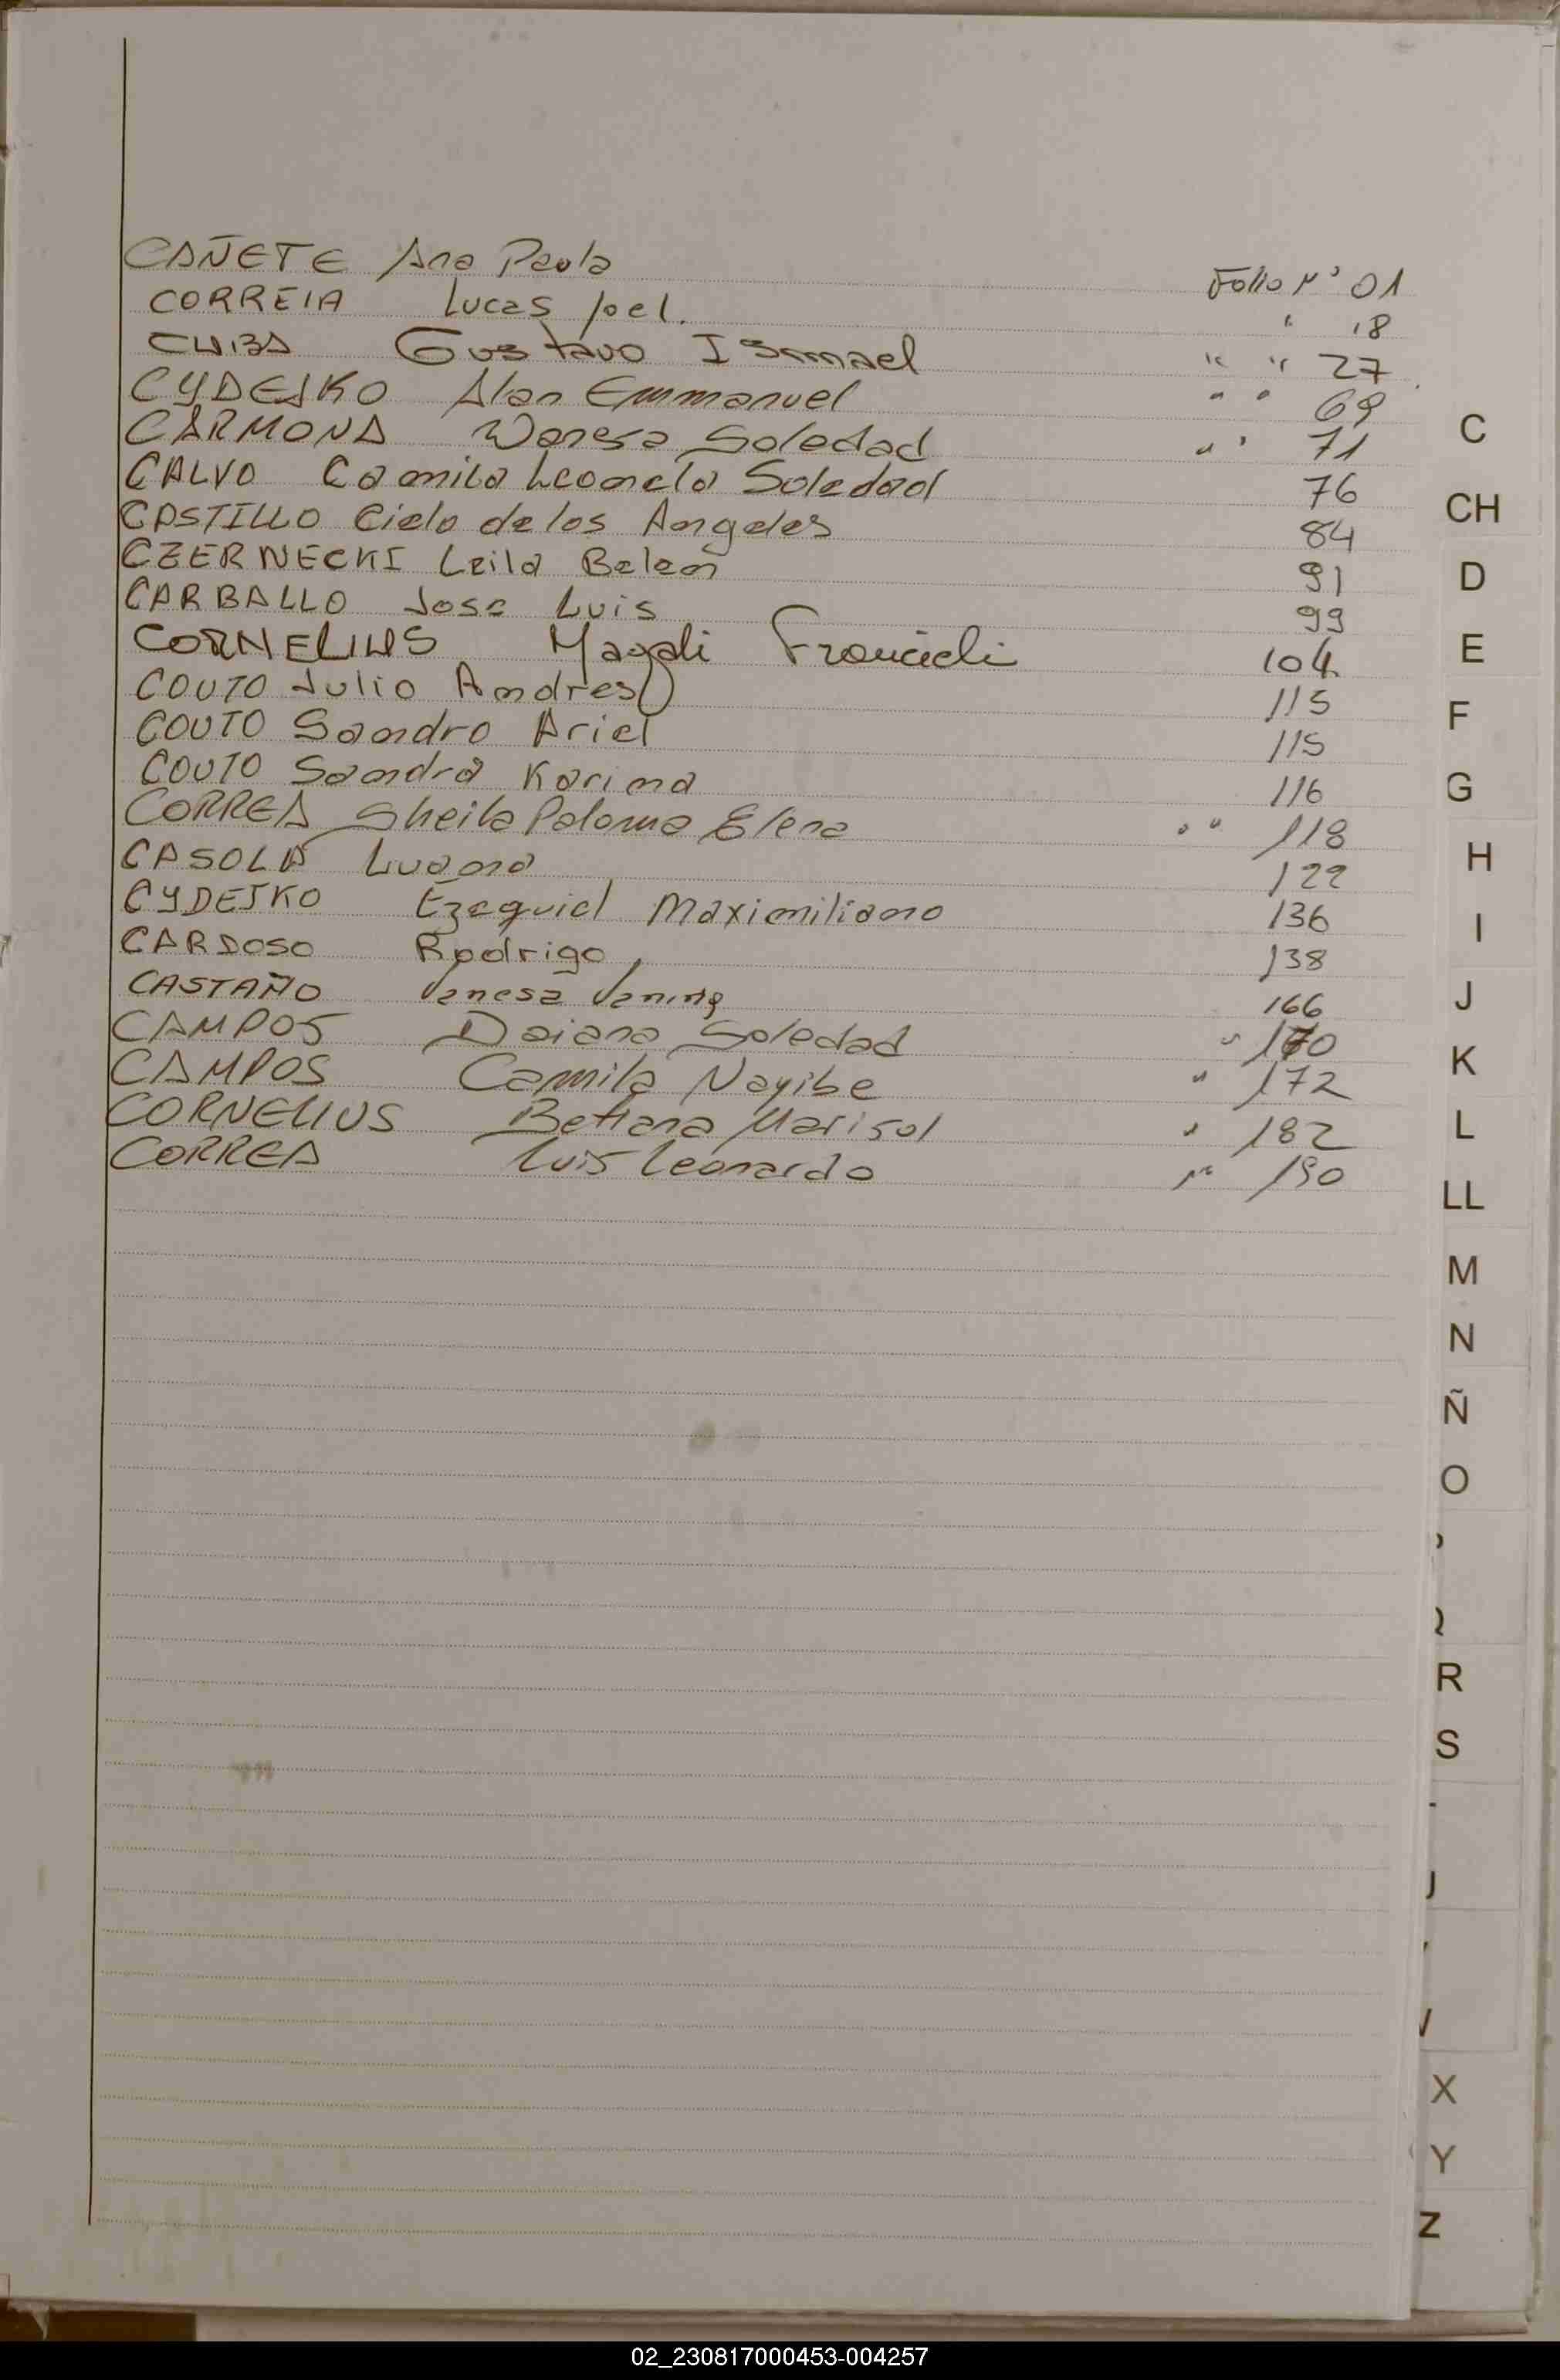 CAÑETE Ana Paula Folio Nº 01
CORREIA Lucas Joel. " 18
Gustavo Ismael " " 27
CYDEJKO Alan Emmanuel " " 69
CARMONA Wanesa Soledad " " 71
CALVO Camila Leonela Soledad 76
CASTILLO Cielo de los Angeles 84
CZERNECKI Leila Belen 91
CARBALLO Jose Luis 99
CORNELIUS Magali Francieli 104
COUTO Julio Andres 115
COUTO Sandro Ariel 115
COUTO Sandra Karina 116
CORREA Sheila Paloma Elena " " 118
CASOLA Luana 122
CYDEJKO Ezequiel Maximiliano 136
CARDOSO Rodrigo 138
CASTAÑO Vanesa 166
CAMPOS Daiana Soledad " 170
CAMPOS Camila Nayibe " 172
CORNELIUS Betiana Marisol " 182
CORREA Luis Leonardo " 190
C
CH
D
E
F
G
H
I
J
K
L
LL
M
N
Ñ
O
R
S
X
Y
Z
02_230817000453-004257